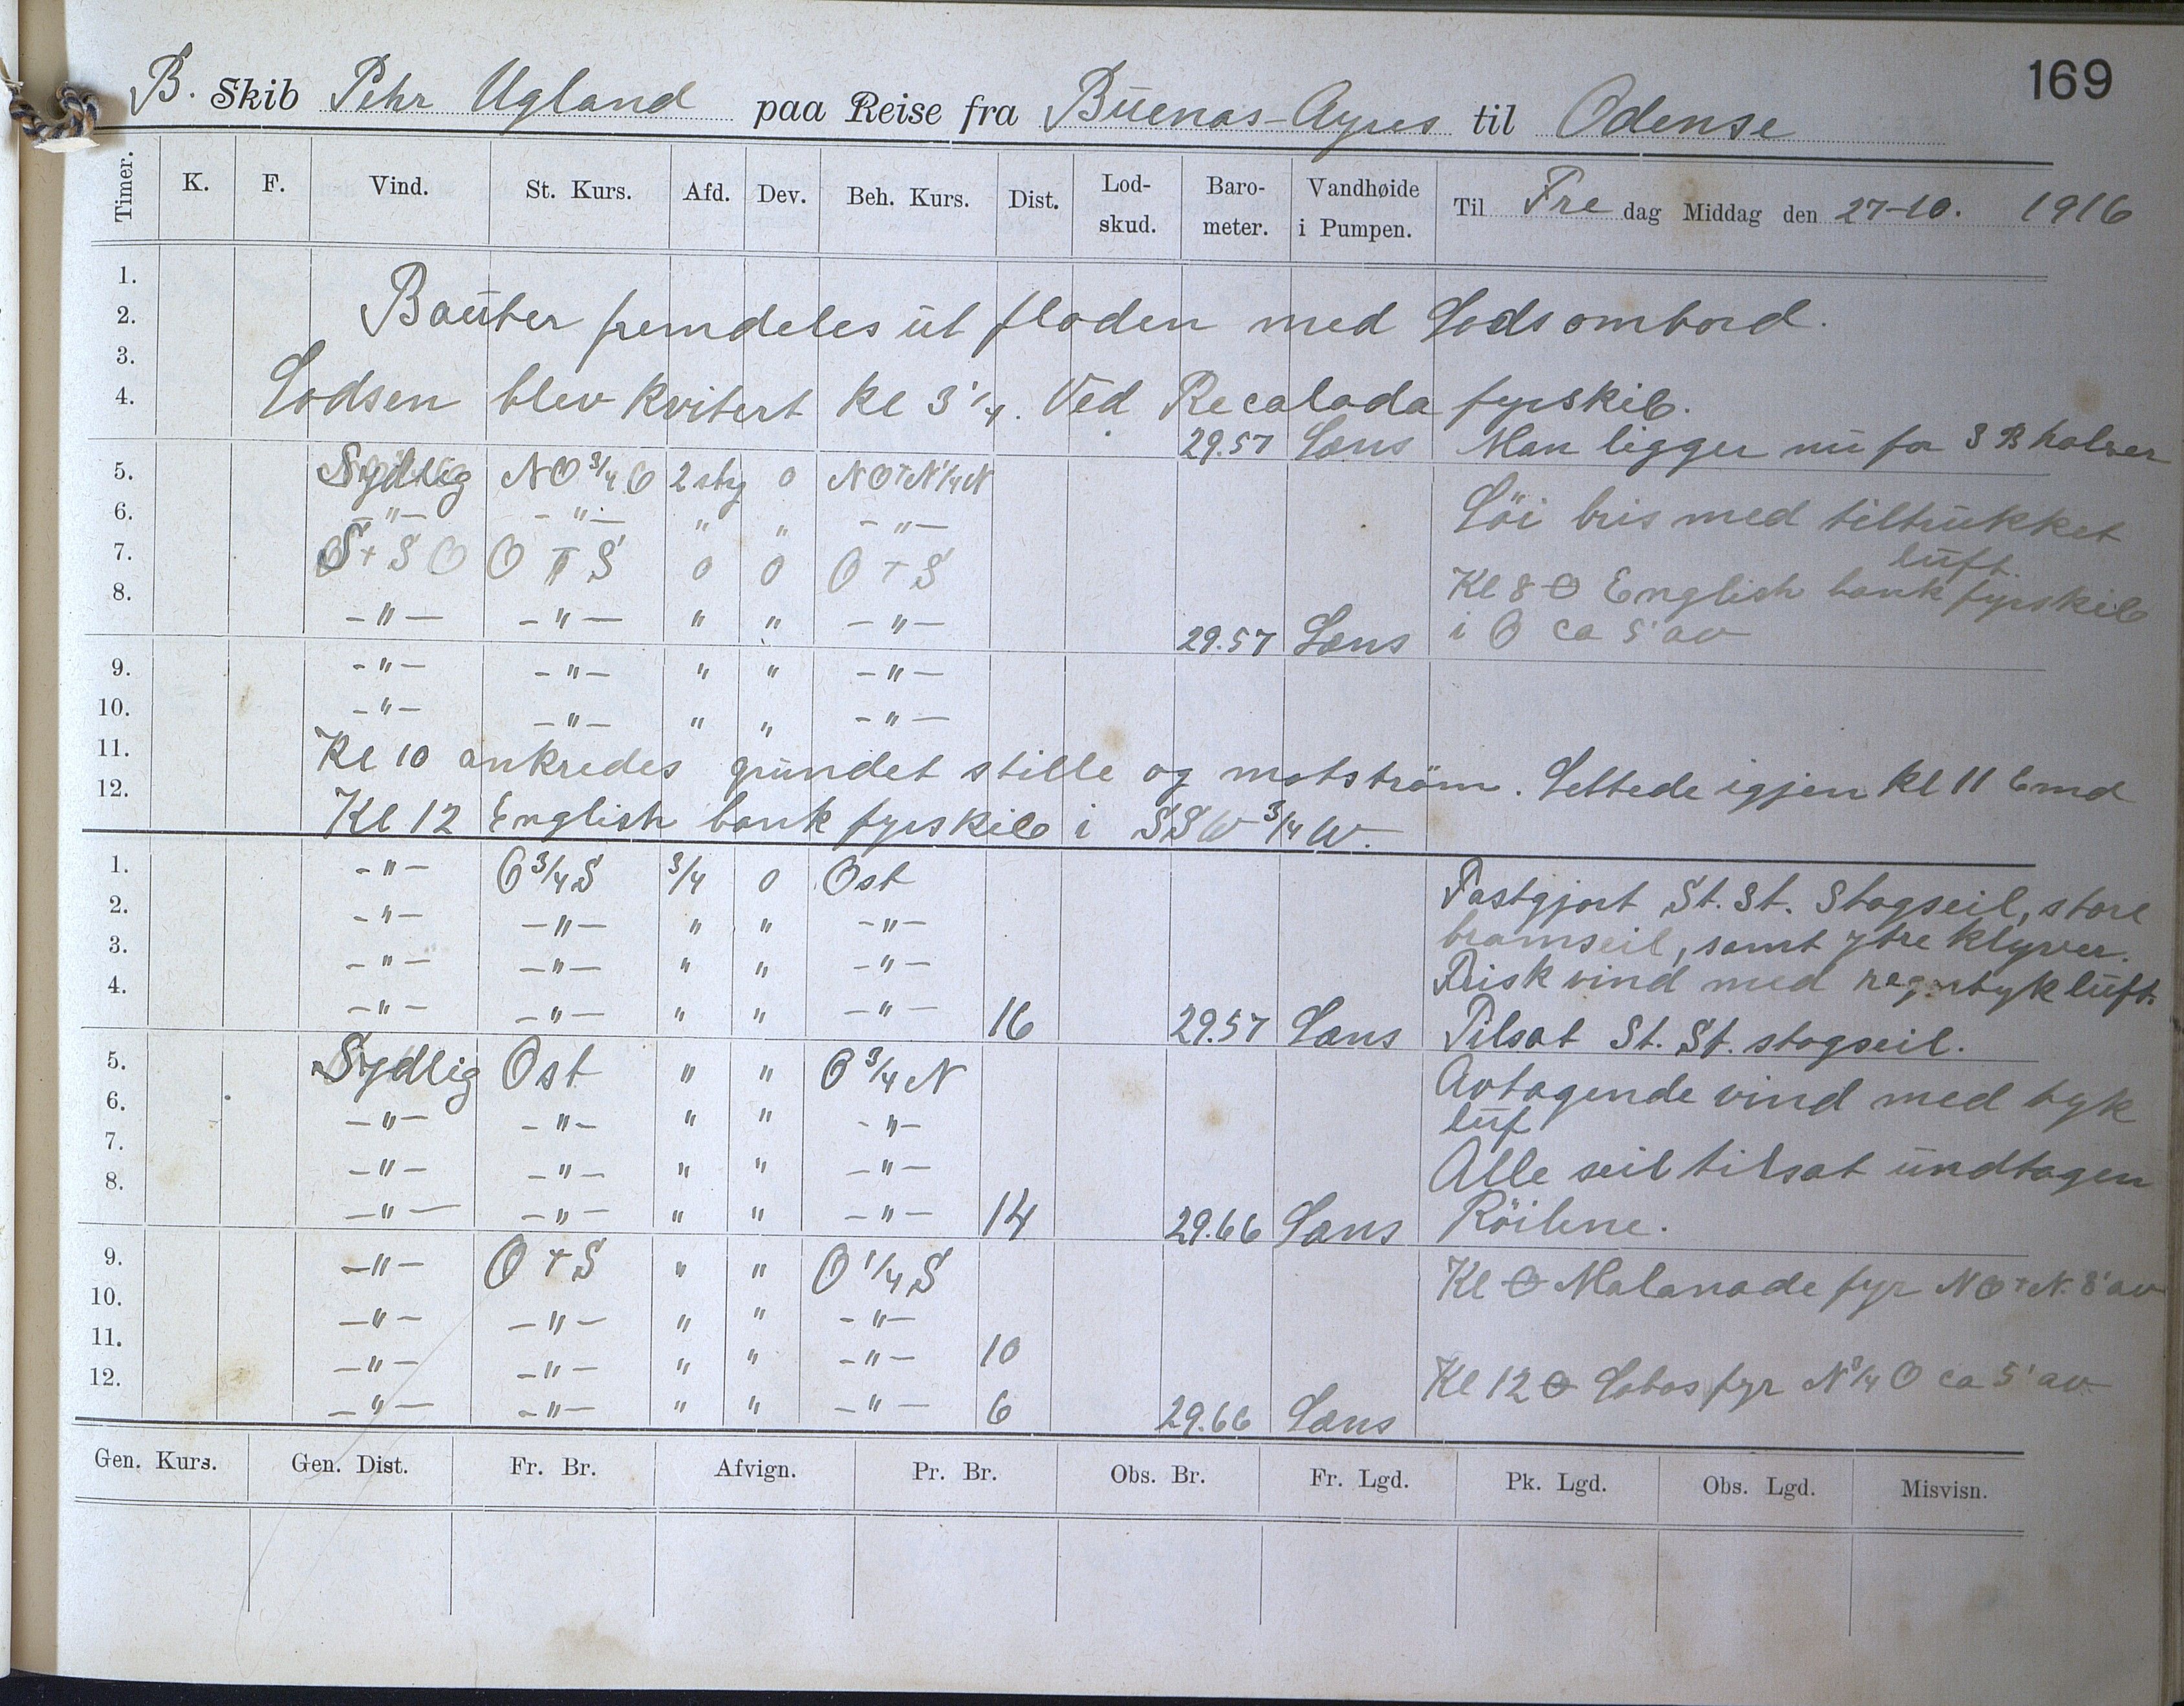 169
B. Skib Pehr Ugland paa Reise fra Buenas-Ayres til Odense
Timer. K. F. Vind. St. Kurs. Afd. Dev. Beh. Kurs. Dist. Lod-skud. Baro-meter. Vandhøide i Pumpen. Til Fre dag Middag den 27-10. 1916
1.
2. Bauter fremdeles ut floden med Lods ombord.
3.
4. Lodsen blev kvitert kl 3 1/4. Ved Recalada fyrskib.
29.57 Læns Man ligger nu for 3 B halser
5. Sydlig NO 3/4 O 2 stg 0 NO+N 1/4 N
Löi bris med tiltrukket
6. -"- -"- " " -"-
luft.
7. S+SO O+S 0 0 O+S
Kl 8 English bank fyrskib
8. -"- -"- " " -"- 29.57 Læns i O ca 5' av
9. -"- -"- " " -"-
10. -"- -"- " " -"-
11. Kl 10 ankredes grundet stille og motström. Lettede igjen kl 11 Emd
12. Kl 12 English bank fyrskib i SSW 3/4 W.
1. -"- O 3/4 S 3/4 0 Ost Fastgjort St. St. Stagseil, store
2. -"- -"- " " -"- bramseil, samt ytre klyver.
3. -"- -"- " " -"- Frisk vind med regntyk luft.
4. -"- -"- " " -"- 16 29.57 Læns Tilsat St. St. stagseil.
5. Sydlig Ost " " O 3/4 N Avtagende vind med tyk
6. -"- -"- " " -"- luf
7. -"- -"- " " -"- Alle seil tilsat undtagen
8. -"- -"- " " -"- 14 29.66 Læns Röilene.
9. -"- O+S " " O 1/4 S Kl Malanade fyr NO+N. 8' av
10. -"- -"- " " -"-
11. -"- -"- " " -"- 10
12. -"- -"- " " -"- 6 29.66 Læns Kl 12 Lobos fyr N 3/4 O ca 5' av
Gen. Kurs. Gen. Dist. Fr. Br. Afvign. Pr. Br. Obs. Br. Fr. Lgd. Pk. Lgd. Obs. Lgd. Misvisn.